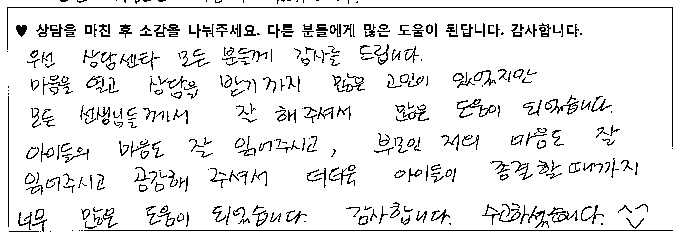 ♥ 상담을 마친 후 소감을 나눠주세요. 다른 분들에게 많은 도움이 된답니다. 감사합니다.
우선 상담센타 모든 분들께 감사를 드립니다.
마음을 열고 상담을 받기까지 많은 고민이 있었지만
모든 선생님들께서 잘 해주셔서 많은 도움이 되었습니다.
아이들의 마음도 잘 읽어주시고, 부모인 저의 마음도 잘
읽어주시고 공감해 주셔서 더더욱 아이들이 종결할때까지
너무 많은 도움이 되었습니다. 감사합니다. 수고하셨습니다. ^^